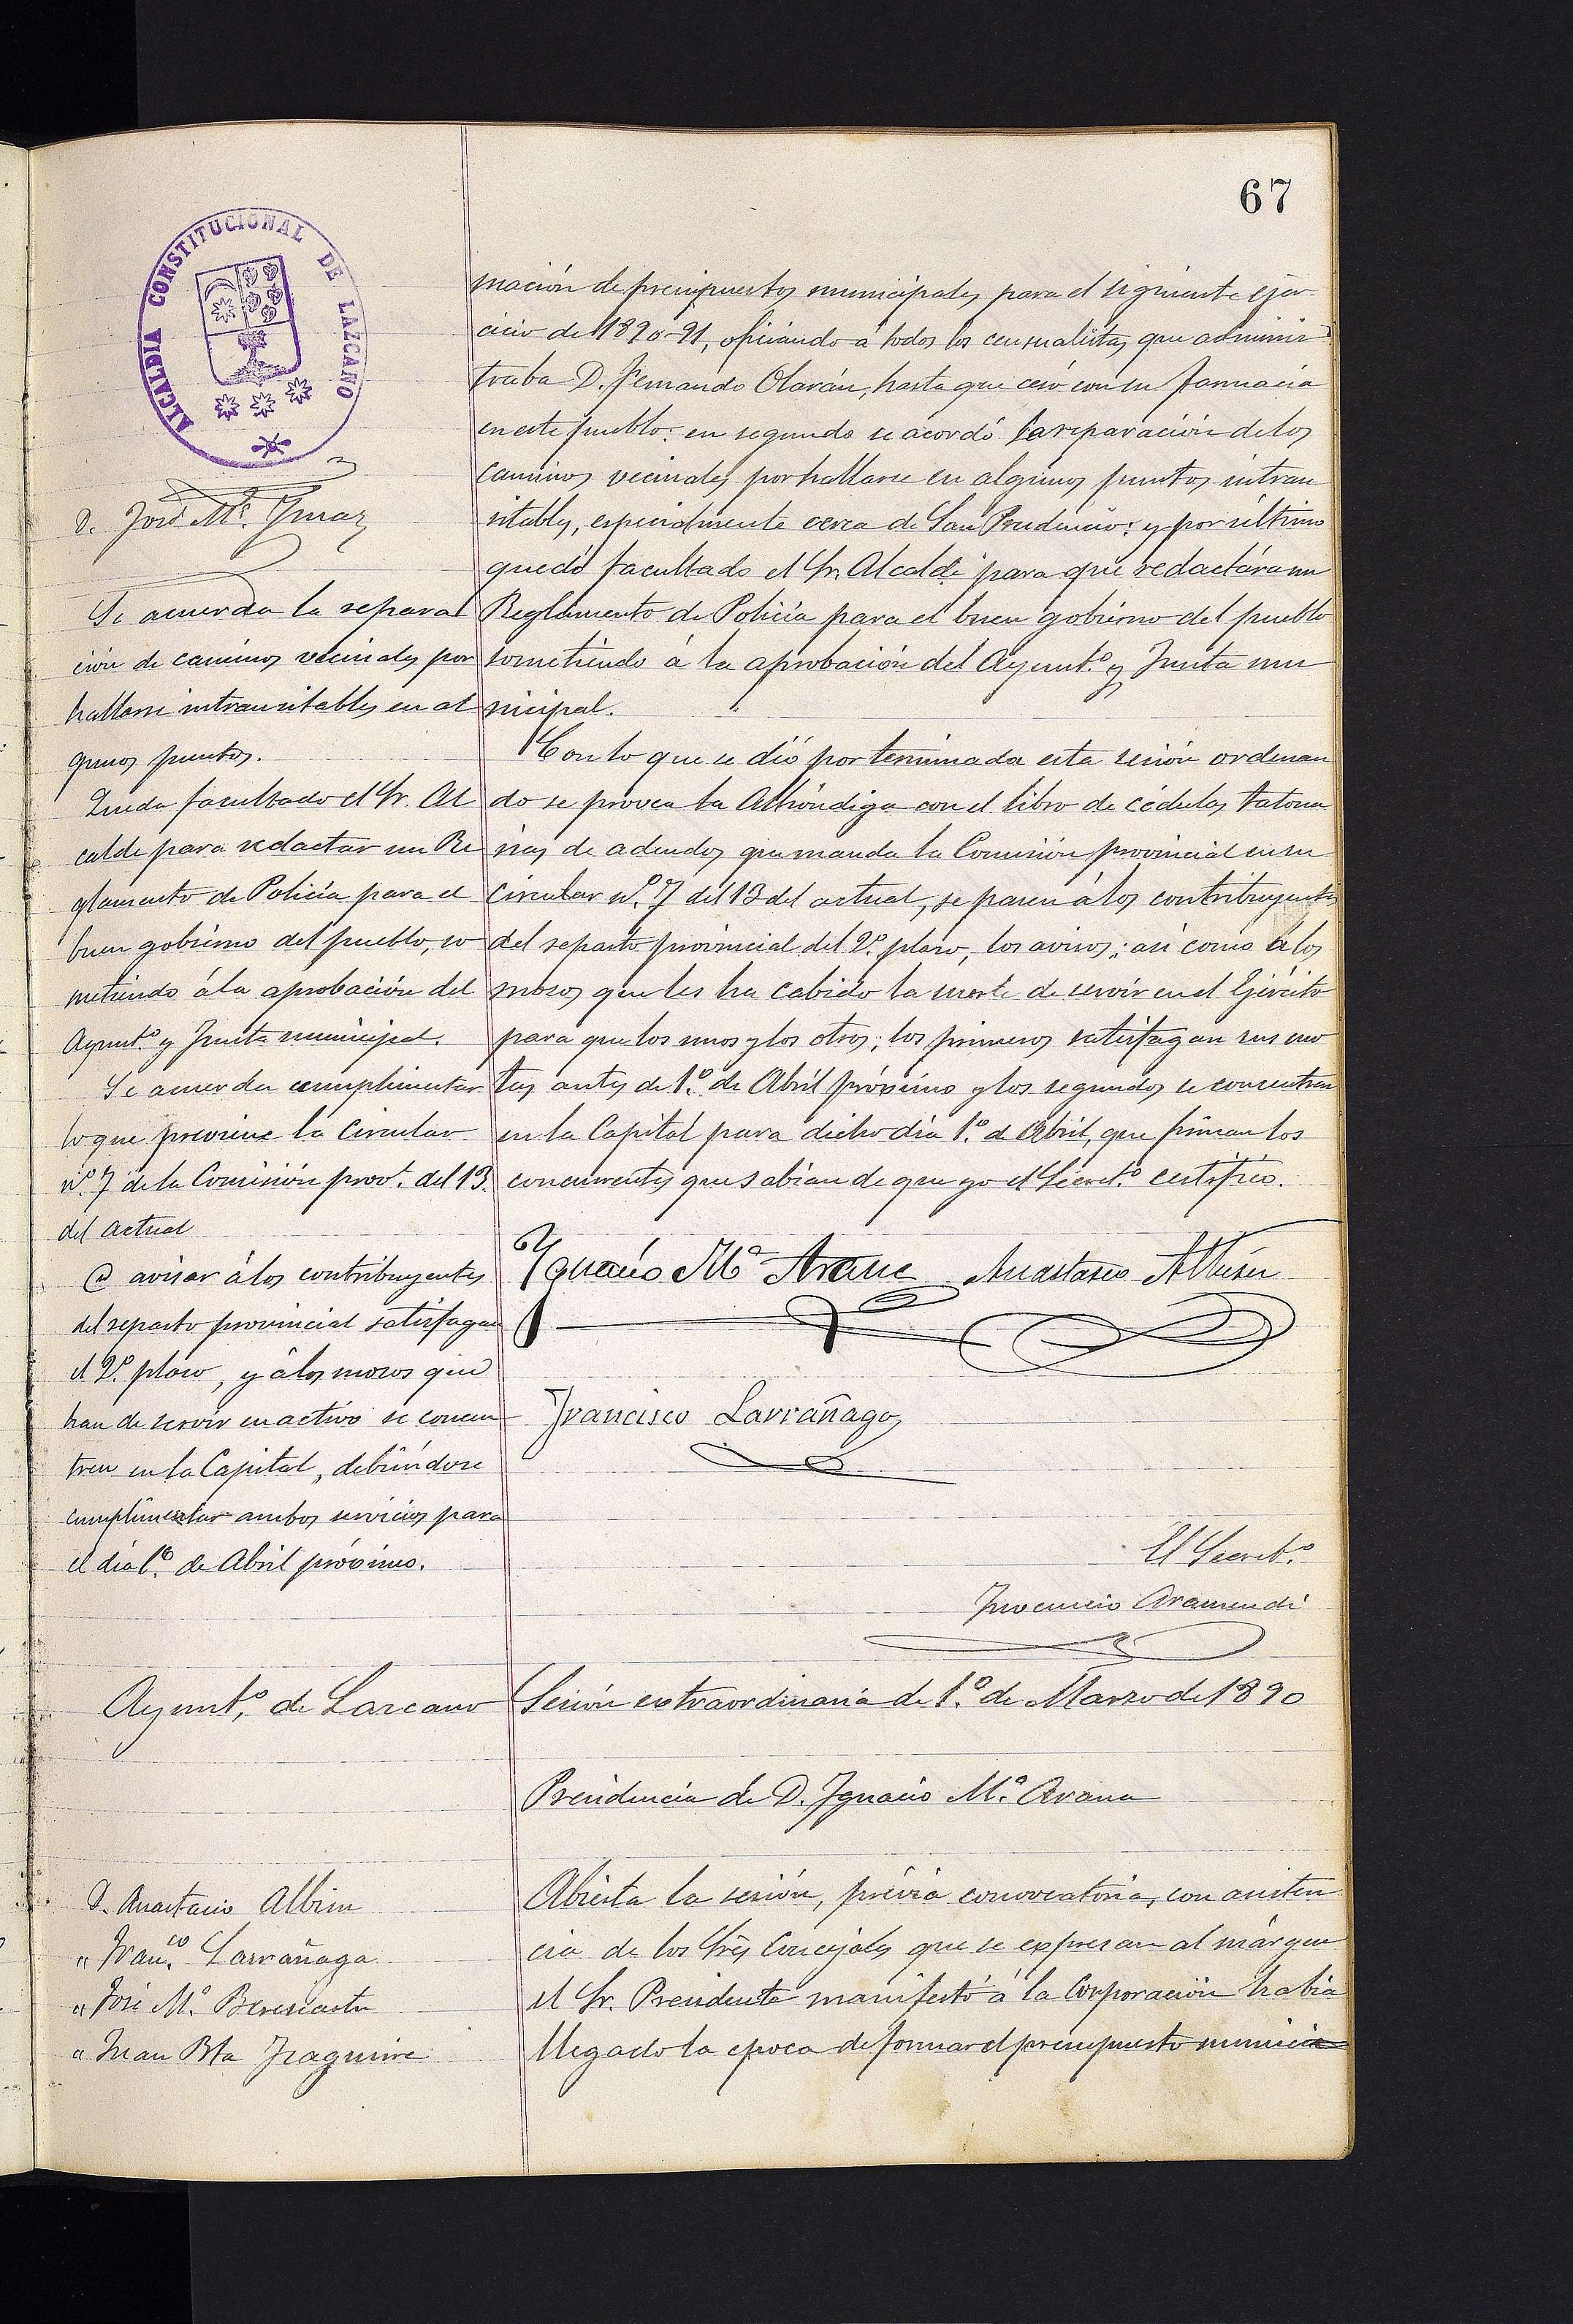 67
ALCALDIA CONSTITUCIONAL DE LAZCANO
D. José Mª. Ymaz
Se acuerda la repara
ción de caminos vecinales por
hallarse intransitables en al
gunos puntos.
Queda facultado el Sr. Al
calde para redactar un Re
glamento de Policía para el
buen gobierno del pueblo, so
metiendo á la aprobación del
Ayuntº. y Junta municipal.
Se acuerda cumplimentar
lo que previene la Circular
nº. 7 de la Comisión provl. del 13
del actual
@ avisar á los contribuyentes
del reparto provincial satisfagan
el 2º. plazo, y á los mozos que
han de servir en activo se concen
tren en la Capital, debiéndose
cumplimentar ambos servicios para
el día 1º. de Abril próximo.
mación de presupuestos municipales para el siguiente ejer-
cicio de 1890-91, oficiando á todos los censualistas que adminis
traba D. Fernando Olarán, hasta que cesó con su farmacia
en este pueblo: en segundo se acordó la reparación de los
caminos vecinales por hallarse en algunos puntos intran
sitables, especialmente cerca de San Prudencio: y por último
quedó facultado el Sr. Alcalde para que redactára un
Reglamento de Policía para el buen gobierno del pueblo
sometiendo á la aprobación del Ayuntº. y Junta mu
nicipal.
Con lo que se dió por terminada esta sesión ordenan
do se provea la Alhóndiga con el libro de cédulas talona
rias de adeudos que manda la Comisión provincial en su
Circular nº. 7 del 13 del actual, se pasen á los contribuyentes
del reparto provincial del 2º. plazo, los avisos; asi como á los
mozos que les ha cabido la suerte de servir en el Ejército
para que los unos y los otros; los primeros satisfagan sus cuo
tas antes de 1º. de Abril próximo y los segundos se concentren
en la Capital para dicho día 1º. de Abril, que firman los
concurrentes que sabían de que yo el Secretº. certifico.
Ygnacio Mª Arana Anastasio Albisu
Francisco Larrañaga
El Secretº.
Inocencio Aramendi
Ayuntº. de Lazcano
Sesión extraordinaria de 1º. de Marzo de 1890
Presidencia de D. Ignacio Mª. Arana
D. Anastasio Albisu
" Francº. Larrañaga
" José Mª. Beresiartu
" Juan Bta Izaguirre
Abierta la sesión, prévia convocatoria, con asisten
cia de los Sres Concejales que se expresan al márgen
el Sr. Presidente manifestó á la Corporación había
llegado la epoca de formar el presupuesto munici